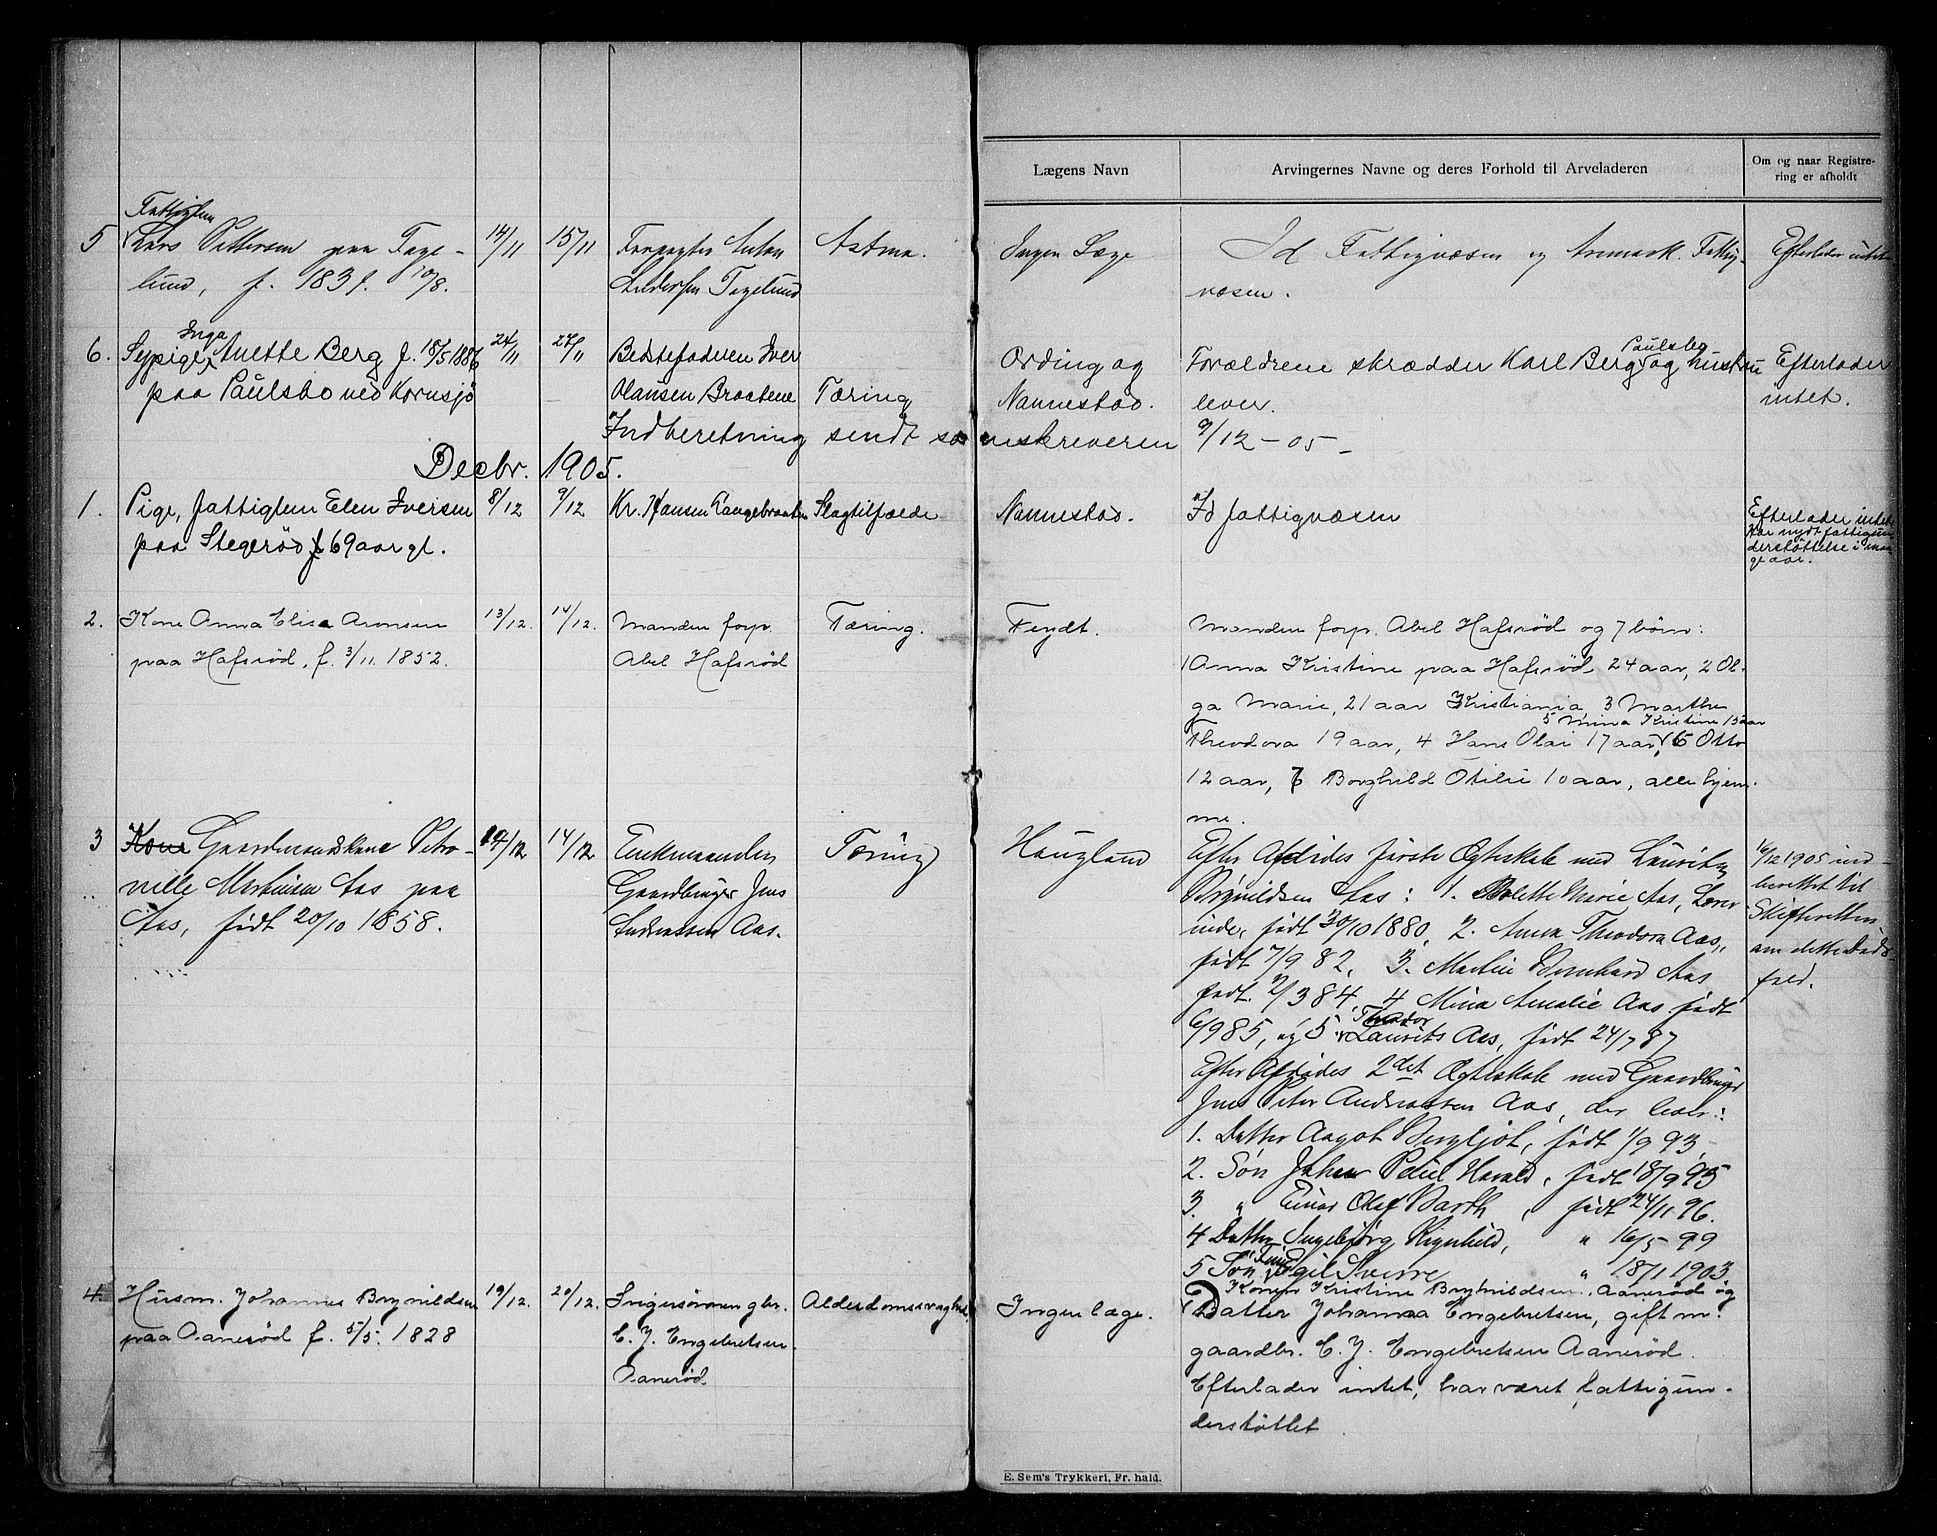 Lægens Navn
Arvingernes Navne og deres Forhold til Arveladeren
Om og naar Registre-
ring er afholdt
Fattiglem
5 Lars Pettersen paa Tage- 14/11 15/11 Forpagter Anton Astma. Ingen Læge Id Fattigvæsen og Aremark Fattig- Efterlader intet
lund, f. 1831. 10/8. Andersen Tagelund væsen.
Inga Paulsbo
6. Sypige Anette Berg f. 18/5 1886 24/11 27/11 Bedstefaderen Iver Ording og Forældrene skrædder Karl Berg og hustru Efterlader
paa Paulsbo ved Kornsjö Hansen Braatene Tæring Nannestad. lever. intet.
Indberetning sendt sorenskriveren 9/12-05-
Decbr. 1905.
1. Pige, fattiglem Elen Iversen 8/12 9/12 Kr. Hansen Langebraaten Slagtilfælde Nannestad. Id fattigvæsen Efterlader intet
Har nydt fattigun-
derstöttelse i man-
ge aar.
paa Stegeröd 69 aar gl.
2. Kone Anna Elisa Aronsen 13/12. 14/12. Manden forp. Tæring. Feydt. Manden forp. Abel Hafsröd og 7 börn:
paa Hafsröd, f. 3/11. 1852. Abel Hafsröd 1 Anna Kristine paa Hafsröd 24 aar, 2 Ol-
ga Marie, 21 aar Kristiania, 3 Marthe
5 Mina Kristine 15 aar
Theodora 19 aar, 4 Hans Olai 17 aar, 6 Otto
12 aar, 7 Borghild Otilie 10 aar, alle hjem-
me.
3 Kone Gaardmandskone Petro- 14/12 14/12 Enkemanden Tæring Haugland Efter Afdödes förste Ægteskab med Lauritz 14/12 1905 ind-
nille Martinsen Aas paa Gaardbruger Jens Brynildsen Aas: 1. Bolette Marie Aas, Lærer- berettet til
Aas, födt 20/10 1858. Andreassen Aas. inde, födt 30/10 1880, 2. Anna Theodora Aas, Skifteretten
födt 7/9 82, 3. Martin Bernhard Aas om dette Döds-
födt 2/3 84, 4 Mina Amalie Aas födt fald.
Theodor
6/9 85, og 5 Laurits Aas, födt 24/7 87
Efter Afdödes 2det Ægteskab med Gaardbruger
Jens Peter Andreassen Aas, der lever:
1. Datter Aagot Bergljot, födt 1/9 93,
2. Sön Johan Petter Harald, födt 18/9 95
3. " Einar Olaf Barth, födt 24/11 96.
4 Datter Ingebjörg Ragnhild, " 16/5 99
Finn
5 Sön Egil Sverre " 18/1 1903
4. Husm. Johannes Brynildsen 19/12. 20/12. Svigersönnen gbr. Alderdomssvaghed Ingen læge. Konen Kristine Brynildsen Aaneröd og
paa Aaneröd f. 5/5. 1828 C. J. Engebretsen Datter Johanna Engebretsen, gift m.
Aaneröd. gaardbr. C. J. Engebretsen Aaneröd.
Efterlader intet, har været fattigun-
derstöttet
E. Sem's Trykkeri, Fr. hald.